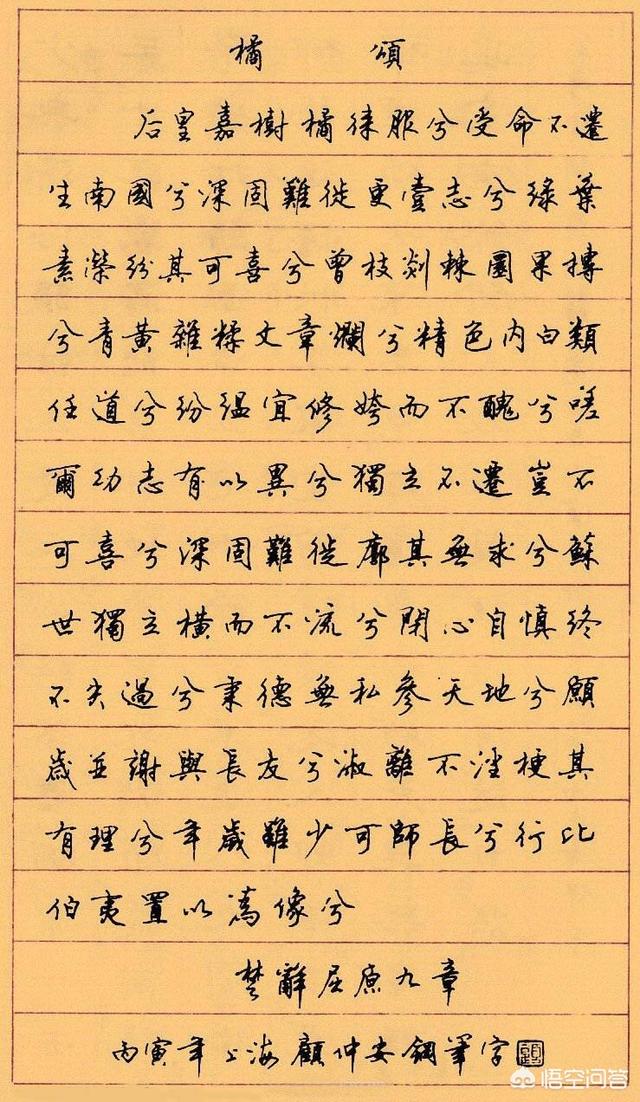 橘頌
后皇嘉樹橘徕服兮受命不遷
生南國兮深固難徙更壹志兮綠葉
素滎紛其可喜兮曾枝剡棘圓果摶
兮青黃雜糅文章爛兮精色內白類
任道兮紛縕宜修姱而不醜兮嗟
爾幼志有以異兮獨立不遷豈不
可喜兮深固難徙廓其無求兮蘇
世獨立橫而不流兮閉心自慎終
不失過兮秉德無私參天地兮願
歲並謝與長友兮淑離不淫梗其
有理兮年歲雖少可師長兮行比
伯夷置以為像兮
楚辭屈原九章
丙寅年上海顧仲安鋼筆字
悟空问答